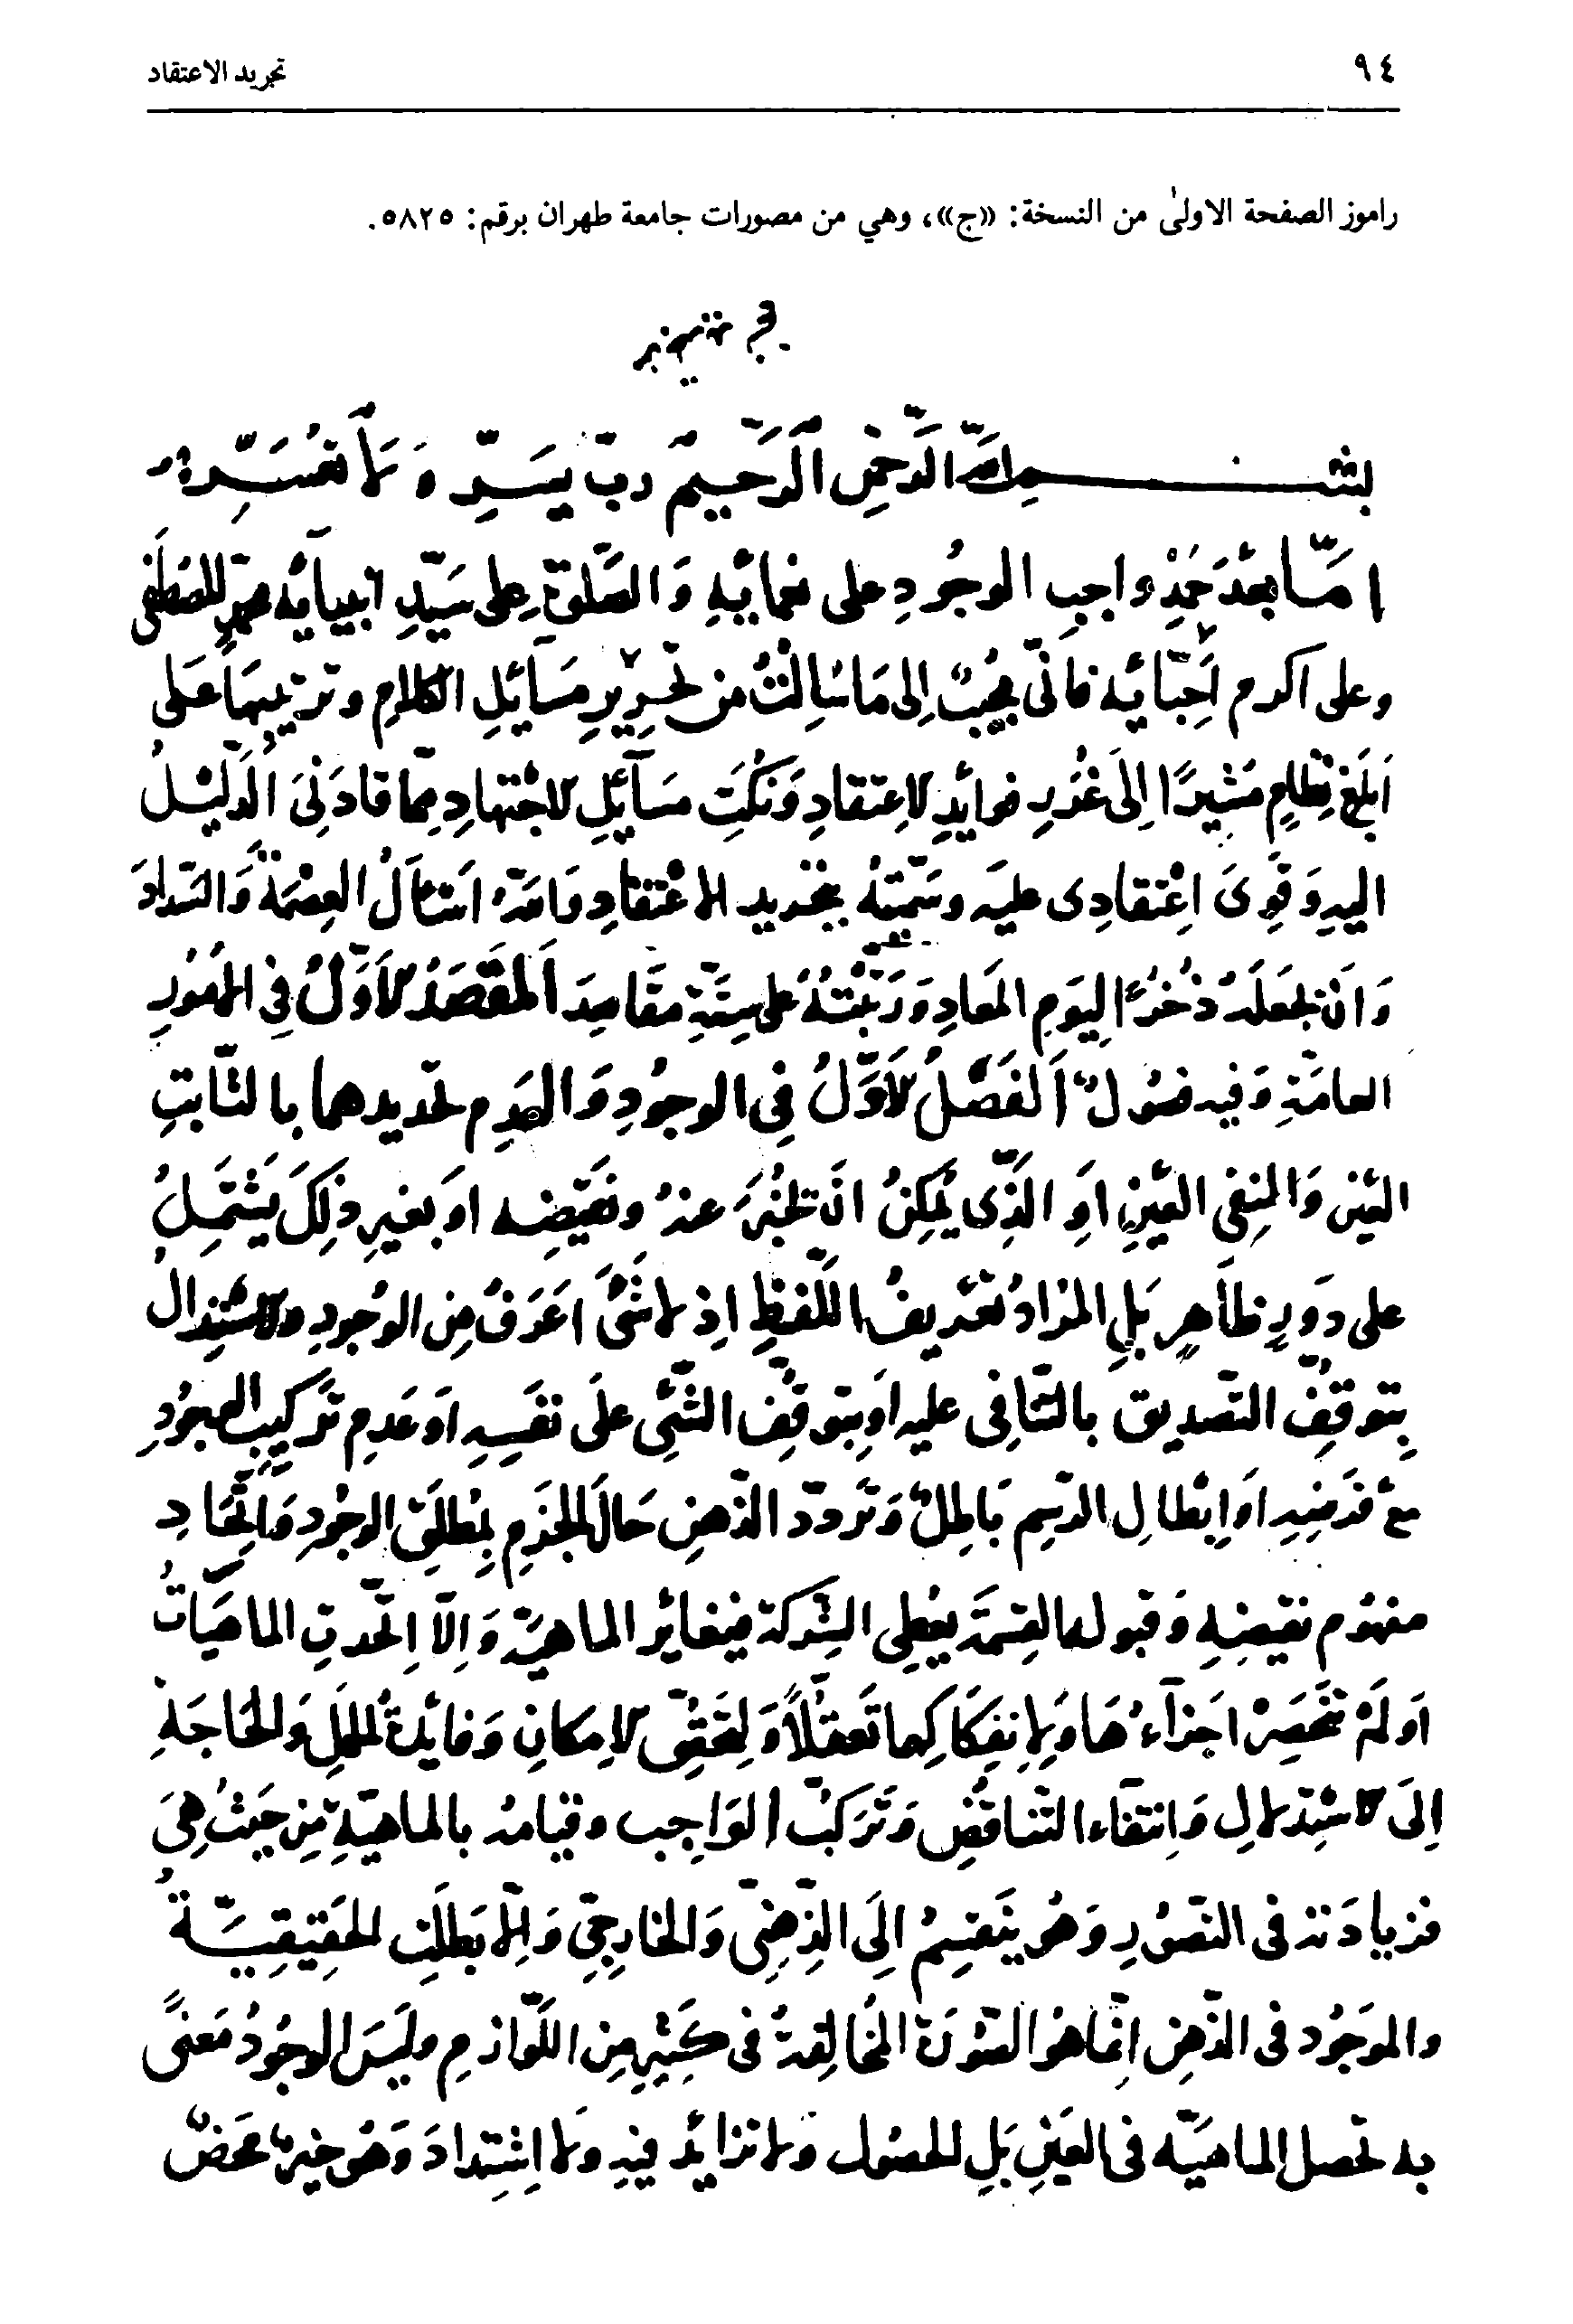 ٩٤
تجريد الاعتقاد
راموز الصفحة الاولىٰ من النسخة: «ج»، وهي من مصورات جامعة طهران برقم: ٥٨٢٥.
بسم الله الرحمن الرحيم رب يسر ولا تعسر
اما بعد حمد واجب الوجود على نعمائه والصلوة على سيد انبيائه محمد المصطفى
وعلى اكرم احبائه فانى مجيب الى ما سالت من تحرير مسائل الكلام وترتيبها على
ابلغ نظام مشيرا الى غرر فوائد الاعتقاد ونكت مسائل الاجتهاد مما قادنى الدليل
اليه وقوى اعتقادى عليه وسميته بتجريد الاعتقاد والله اسأل العصمة والسداد
وان يجعله ذخرا ليوم المعاد ورتبته على ستة مقاصد المقصد الاول فى الامور
العامة وفيه فصول الفصل الاول فى الوجود والعدم تحديدهما بالثابت
العين والمنفى العين او الذى يمكن ان يخبر عنه ونقيضه او بغير ذلك يشتمل
على دور ظاهر بل المراد تعريف اللفظ اذ لا شئ اعرف من الوجود والاستدلال
بتوقف التصديق بالتنافى عليه او بتوقف الشئ على نفسه او عدم تركيب الوجود
مع فرضه او ابطال الرسم باطل وتردد الذهن حال الجزم بمطلق الوجود واتحاد
مفهوم نقيضه وقبوله القسمة يعطى الشركة فيغاير الماهية والا اتحدت الماهيات
او لم تنحصر اجزاءها ولانفكاكهما تعقلا ولتحقق الامكان وفائدة الحمل والحاجة
الى الاستدلال وانتفاء التناقض وتركب الواجب وقيامه بالماهية من حيث هى
فزيادته فى التصور وهو ينقسم الى الذهنى والخارجى والا بطلت الحقيقية
والموجود فى الذهن انما هو الصورة المخالفة فى كثير من اللوازم وليس الوجود معنى
به تحصل الماهية فى العين بل الحصول ولا تزايد فيه ولا اشتداد وهو خير محض